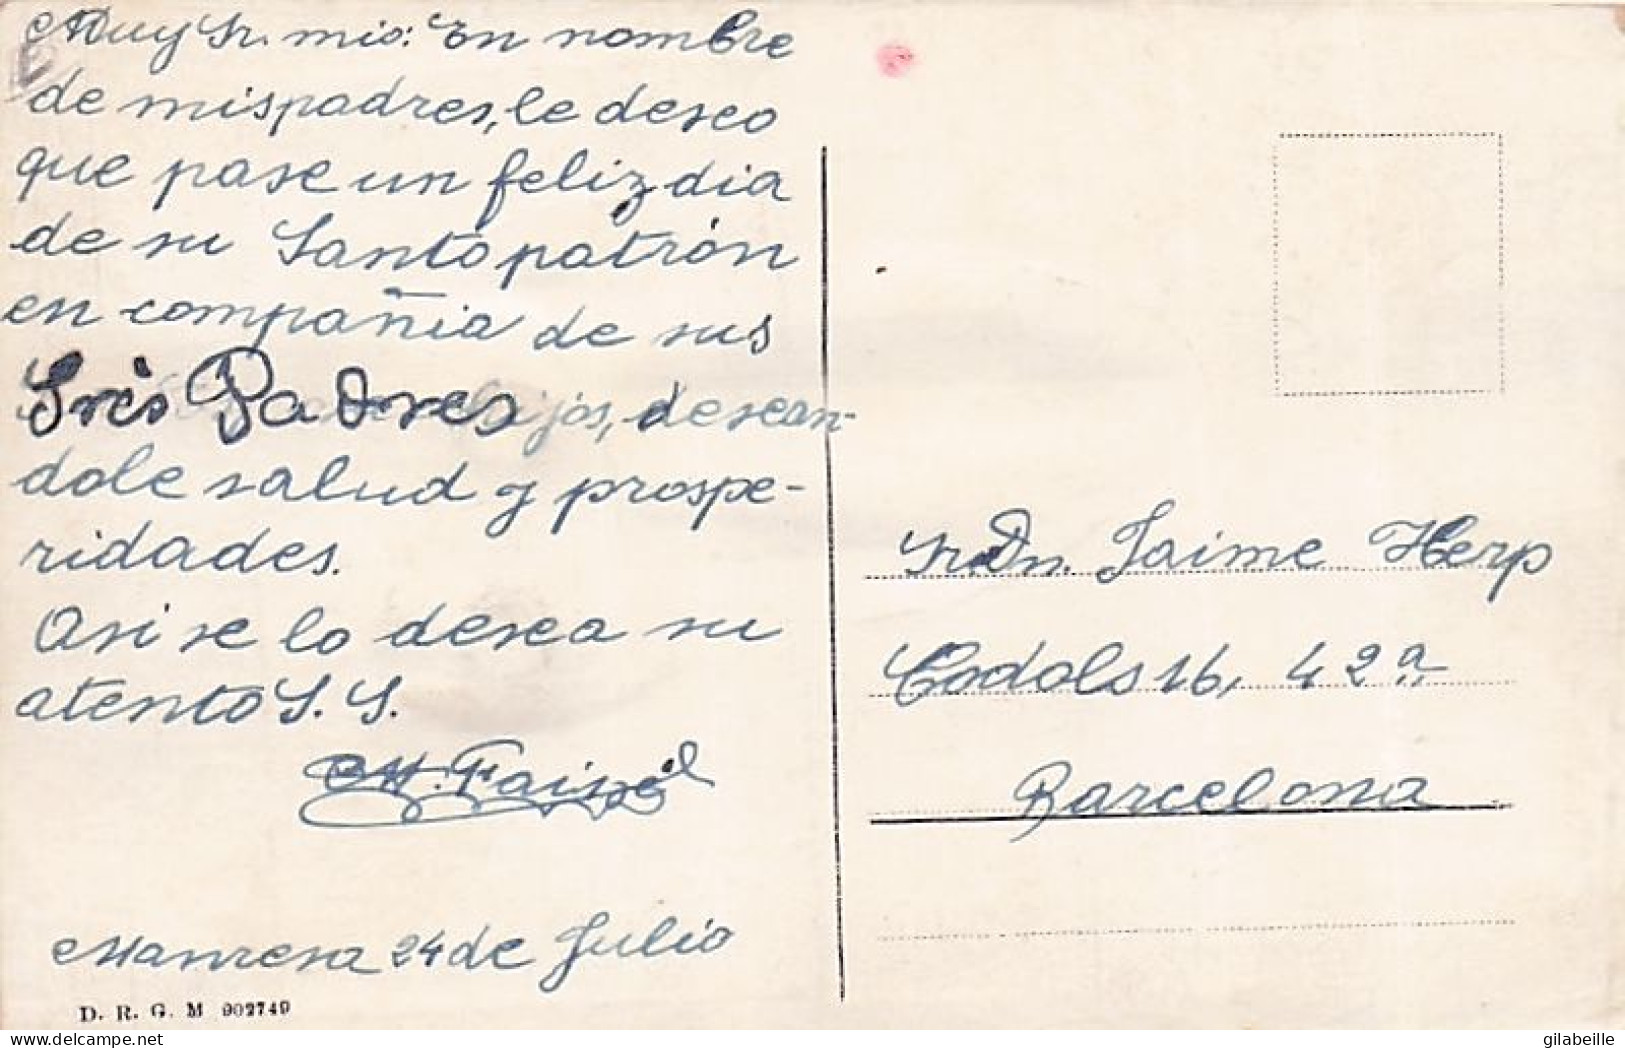 Muy Sr. mio: En nombre
de mis padres, le deseo
que pase un feliz dia
de su Santo patrón
en compañia de sus
Srès Padres hijos, desean-
dole salud y prospe-
ridades.
Asi se lo desea su
atento S. S.
Manresa 24 de Julio
D. R. G. M 902749
Sr. Dn. Jaime Herp
Codols 16, 4 2ª
Barcelona
gilabeille
delcampe.net